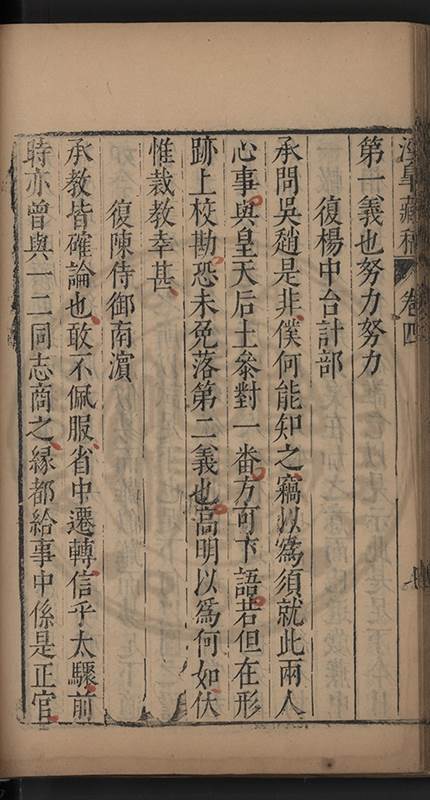 涇皐藏稿 卷四
第一義也努力努力
復楊中台計部
承問吳趙是非僕何能知之竊以爲須就此兩人
心事與皇天后土參對一番方可下語若但在形
跡上校勘恐未免落第二義也高明以爲何如伏
惟裁教幸甚
復陳侍御南濵
承教皆確論也敢不佩服省中遷轉信乎太驟前
時亦曾與一二同志商之緣都給事中係是正官